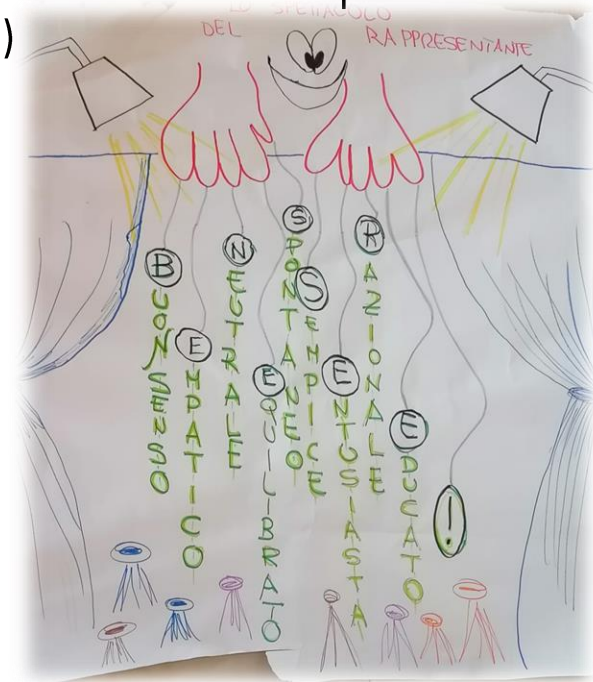 )
LO SPETTACOLO
DEL RAPPRESENTANTE
BUONSENSO
EMPATICO
NEUTRALE
EQUILIBRATO
SPONTANEO
SEMPICE
ENTUSIASTA
RAZIONALE
EDUCATO
!